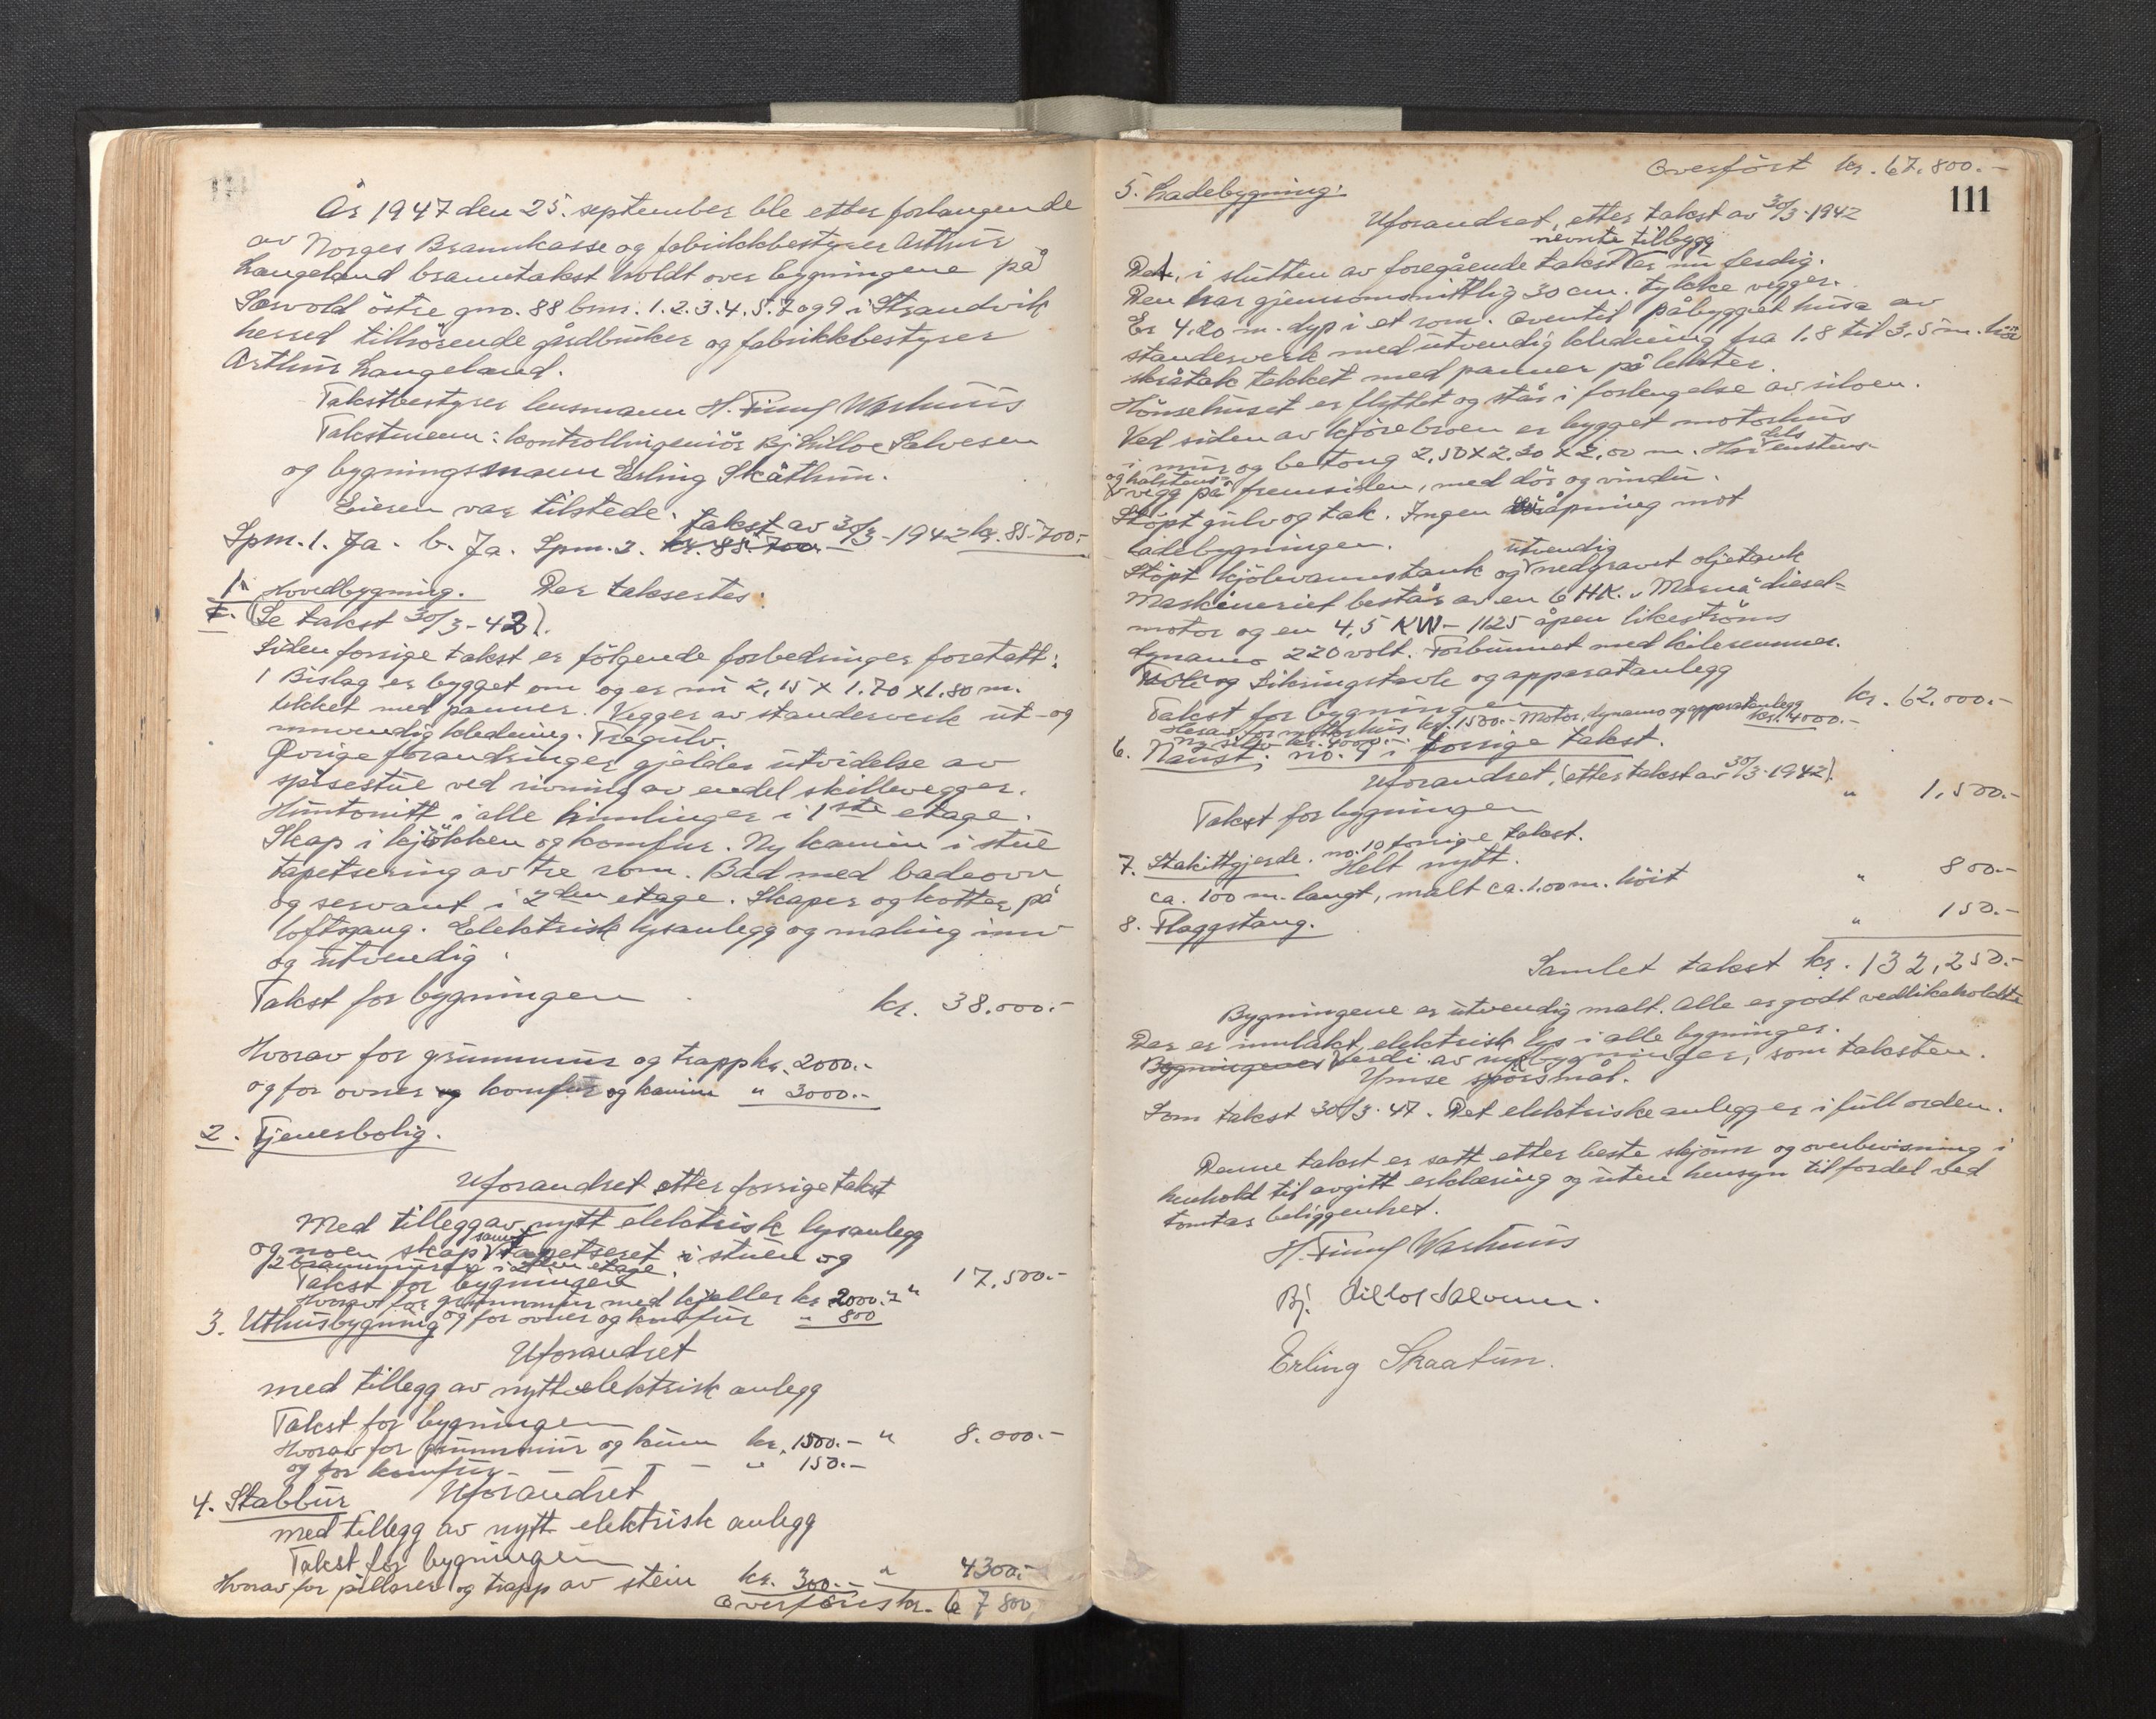 År 1947 den 25. september ble etter forlangende
av Norges Brannkasse og fabrikkbestyrer Arthur
Langeland branntakst holdt over bygningene på
Sørvold östre gno. 88 bnr. 1.2.3.4.5.7 og 9 i Strandvik
herred tilhörende gårdbruker og fabrikkbestyrer
Arthur Langeland.
Takstbestyrer lensmann H. Finnf Warhuus
Takstmenn: kontrollingeniör Bj. Lilloe Salvesen
og bygningsmann Erling Skåthun.
Eieren var tilstede.
Spm. 1. Ja. b. Ja. Spm. 3. kr. 85.700.- takst av 30/3-1942 kr. 85.700.-
Der taksertes:
1. Hovedbygning.
(Se takst 30/3-42).
Siden forrige takst er fölgende forbedringer foretatt:
1 Bislag er bygget om og er nu 2,15 x 1.70 x 1.80 m.
tekket med panner. Vegger av standerverk ut- og
innvendig kledning. Tregulv.
Øvrige forandringer gjelder utvidelse av
spisestue ved rivning av endel skillevegger.
Huntonitt i alle himlinger i 1ste etage.
Skap i kjökken og komfur. Ny kamin i stue
tapetsering av tre rom. Bad med badeovn
og servant i 2den etage. Skaper og kotter på
loftsgang. Elektrisk lysanlegg og maling inn-
og utvendig.
Takst for bygningen kr. 38.000.-
Hvorav for grunnmur og trapp kr. 2000.-
og for ovner og komfur og kamin " 3000.-
2. Tjenerbolig.
Uforandret etter forrige takst
Med tillegg av nytt elektrisk lysanlegg
og noen skap samt tapetseret i stuen og
2 i 2den etage.
Takst for bygningen " 17.500.-
Hvorav for grunnmur med kjeller kr. 2000.-
og for ovner og komfur " 800
3. Uthusbygning
Uforandret
med tillegg av nytt elektrisk anlegg
Takst for bygningen " 8.000.-
Hvorav for grunnmur og kum kr. 1500.-
og for komfur - - - " 150.-
4. Stabbur Uforandret
med tillegg av nytt elektrisk anlegg
Takst for bygningen " 4300.-
Hvorav for pillarer og trapp av stein kr. 300.-
Overföres kr. 67800
111
Overfört kr. 67.800.-
5. Ladebygning:
Uforandret, etter takst av 30/3-1942
Det, i slutten av foregående takst nevnte tilbygg er nu ferdig.
Den har gjennomsnittlig 30 cm. tykke vegger.
Er 4.20 m. dyp i et rom. Oventil påbygget huse av
standerverk med utvendig kledning fra 1.8 til 3,5 m. höi
skråtak tekket med panner på lekter.
Hönsehuset er flyttet og står i forlengelse av siloen.
Ved siden av kjörebroen er bygget motorhus
i mur og betong 2,50 x 2,20 x 2,00 m. Har dels enstens-
og halvstens vegg på fremsiden, med dör og vindu.
Stöpt gulv og tak. Ingen åpning mot
ladebygningen.
Stöpt kjölevannstank og utvendig nedgravet oljetank
Maskineriet består av en 6 HK. "Marna" diesel-
motor og en 4,5 KW - 1125 åpen likeströms
dynamo 220 volt. Forbunnet med kileremmer.
Tavle og Sikringstavle og apparatanlegg
Takst for bygningen kr. 62.000.-
Herav for motorhus kr. 1500.- Motor, dynamo og apparatanlegg kr. 4000.-
silo kr. 4000.-
6. Naust: no. 9 i forrige takst.
Uforandret. (etter takst av 30/3-1942).
Takst for bygningen " 1,500.-
7. Stakittgjerde. no. 10 forrige takst.
Helt nytt.
ca. 100 m. langt, malt ca. 1.00 m. höit " 800.-
8. Flaggstang. " 150.-
Samlet takst kr. 132,250.-
Bygningene er utvendig malt. Alle er godt vedlikeholdte
Der er innlakt elektrisk lys i alle bygninger.
Bygningenes Verdi av nybygninger, som taksten.
Ymse spörsmål.
Som takst 30/3-47. Det elektriske anlegg er i full orden.
Denne takst er satt etter beste skjönn og overbevisning i
henhold til avgitt erklæring og uten hensyn til fordel ved
tomtas beliggenhet.
H. Finnf Warhuus
Bj. Lilloe Salvesen.
Erling Skaatun.